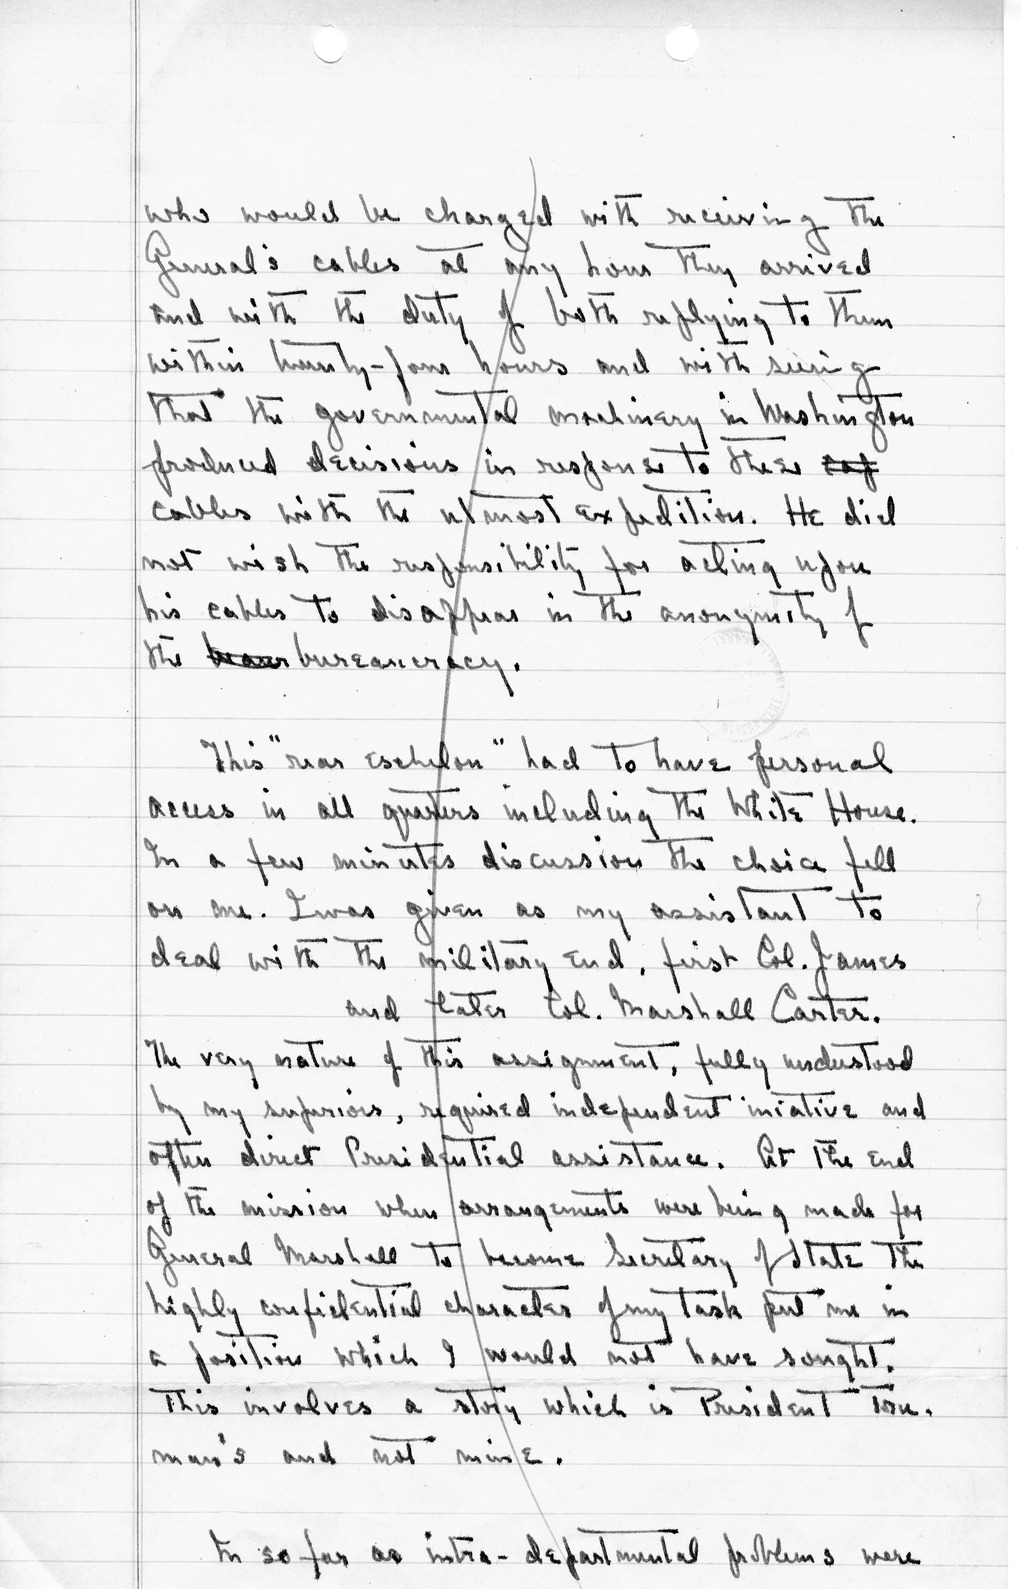 who would be charged with receiving the
General's cables at any hour they arrived
and with the duty of both replying to them
within twenty-four hours and with seeing
that the governmental machinery in Washington
produced decisions in response to these cap
cables with the utmost expedition. He did
not wish the responsibility for acting upon
his cables to disappear in the anonymity of
the bureaucracy.
This "rear eschelon" had to have personal
access in all quarters including the White House.
In a few minutes discussion the choice fell
on me. I was given as my assistant to
deal with the military end, first Col. James
and later Col. Marshall Carter.
The very nature of this assignment, fully understood
by my superiors, required independent iniative and
often direct Presidential assistance. At the end
of the mission when arrangements were being made for
General Marshall to become Secretary of State the
highly confidential character of my task put me in
a position which I would not have sought.
This involves a story which is President Tru-
man's and not mine.
In so far as intra-departmental problems were